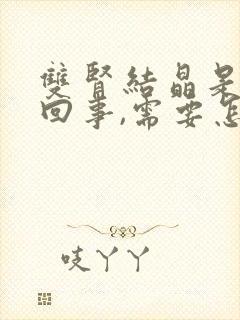 雙腎結晶是
回事,需要怎
吱丫丫